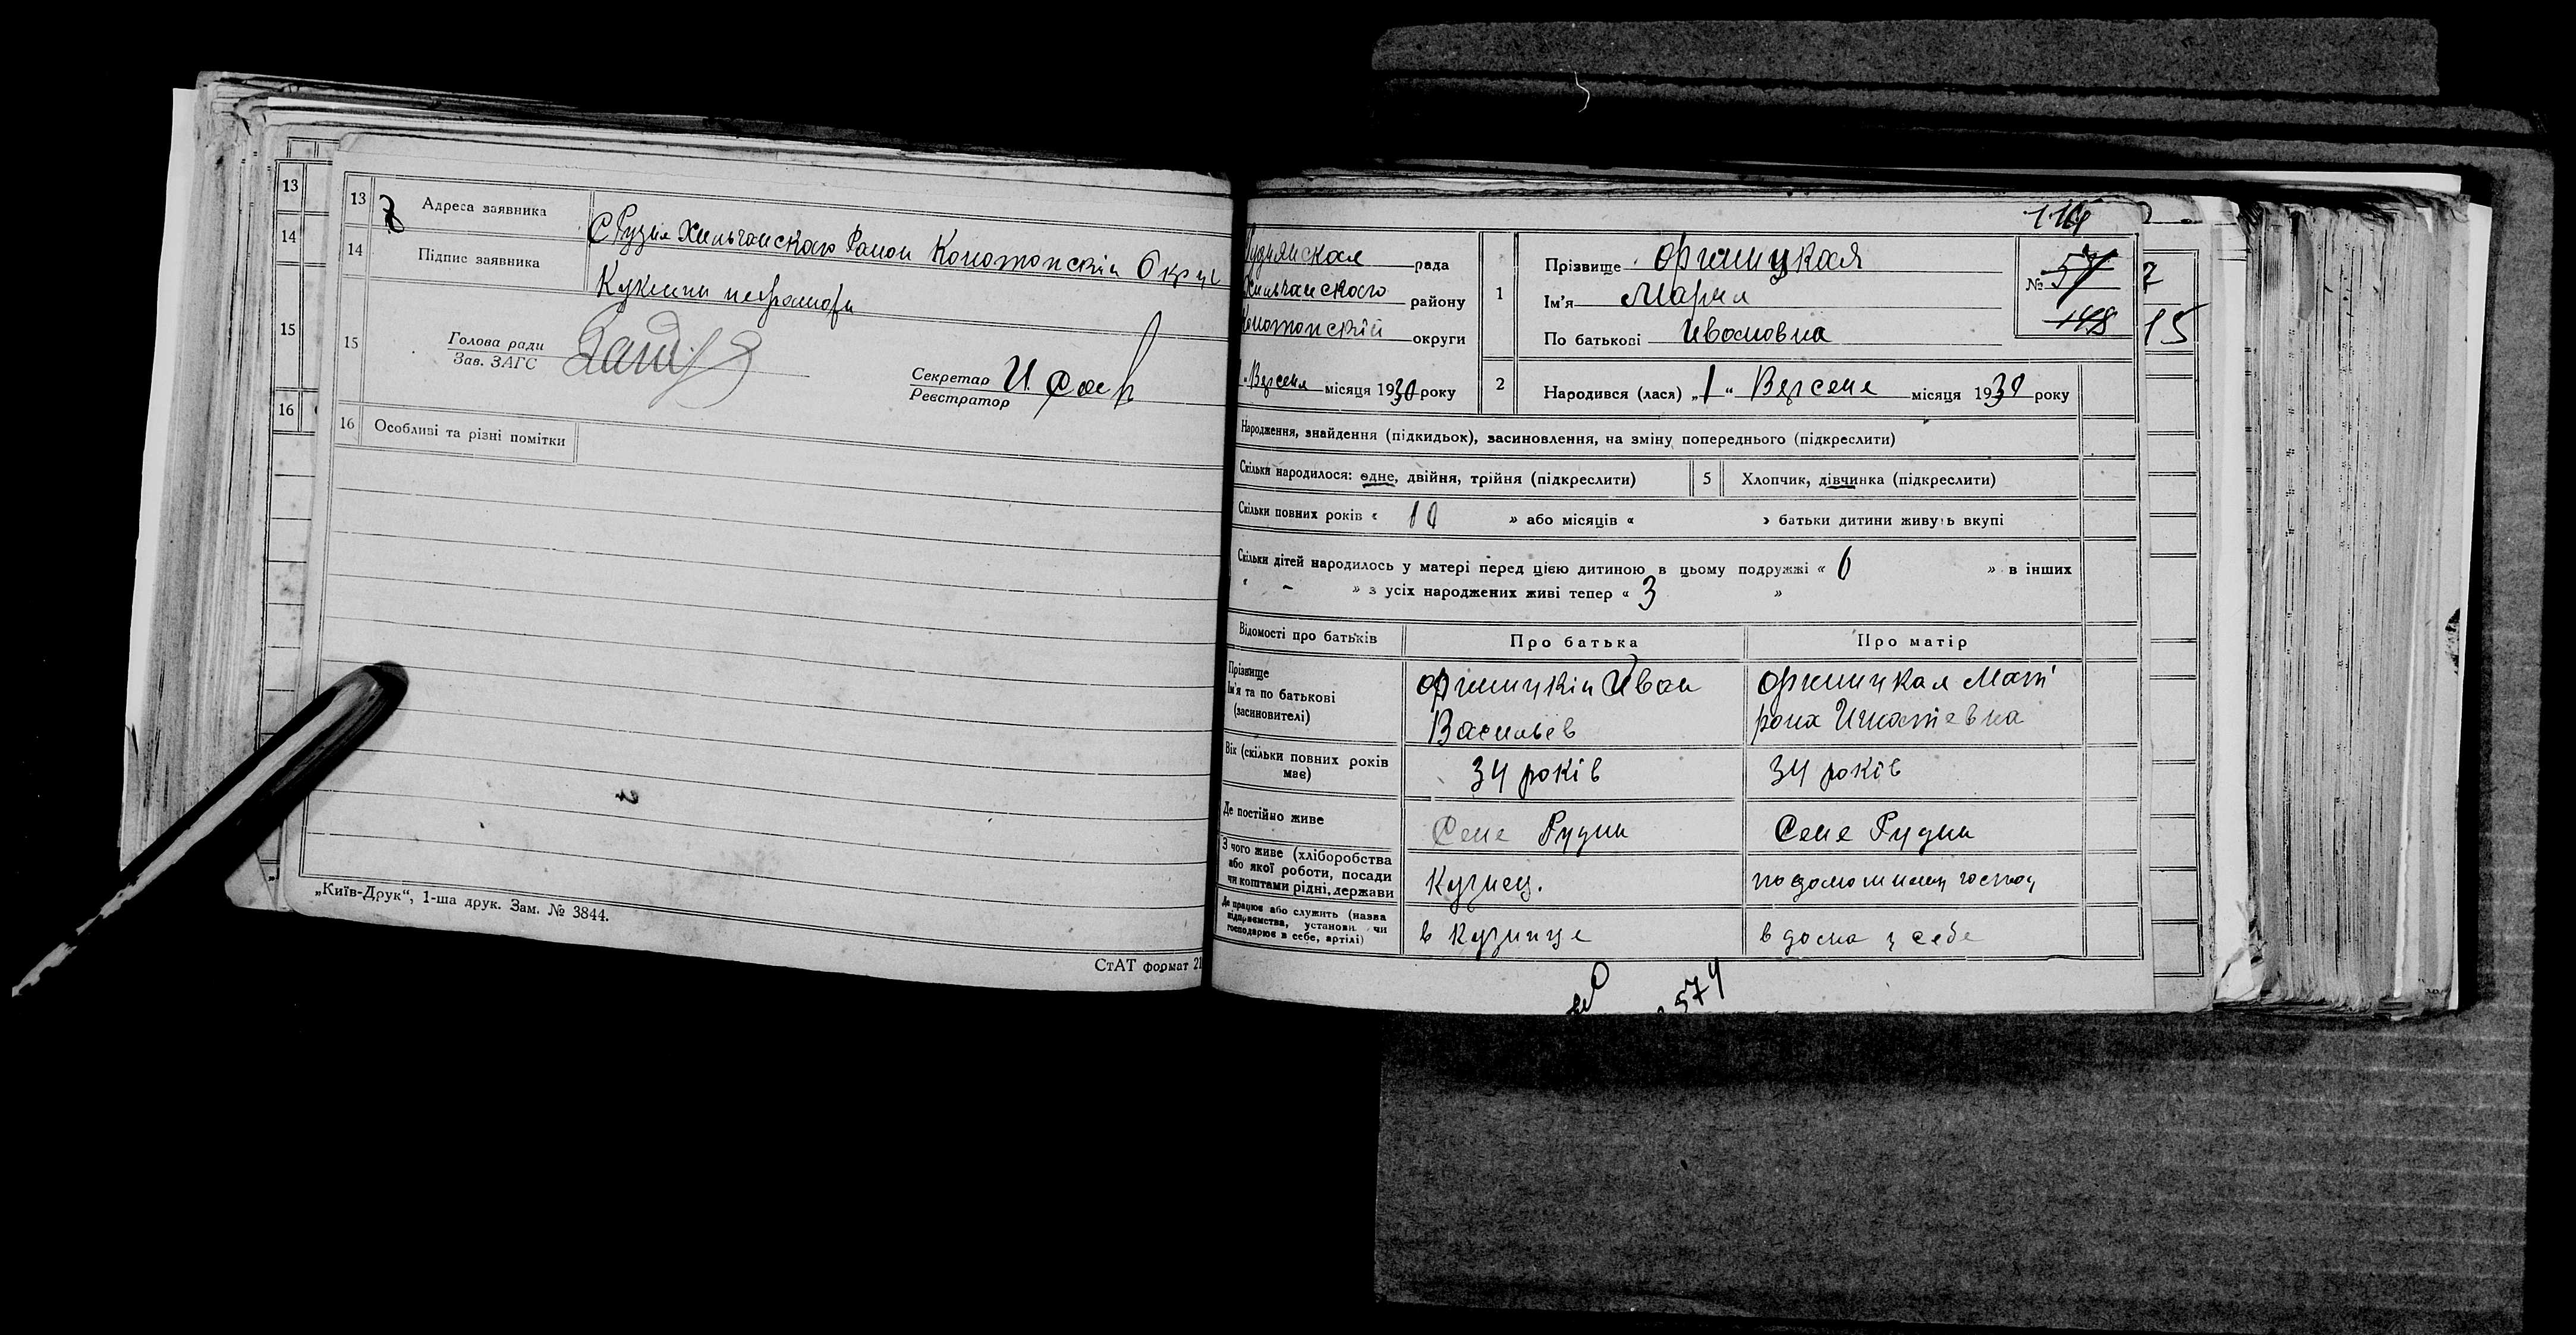 13
14
15
16
13 Адреса заявника С Рудня Хильчанскаго Район Конотопскій Округ
14 Підпис заявника
15 Голова ради
Зав. ЗАГС
Секретар
Реєстратор
16 Особливі та різні помітки
„Київ-Друк“, 1-ша друк. Зам. № 3844.
СтАТ формат 21
рада
Хильчанского району
Конотопскій округи
місяця 1930 року
1 Прізвище Оржицкая
Ім'я Мария
По батькові Ивановна
№ 57
148
15
2 Народився (лася) „1“ Версеня місяця 1930 року
Народження, знайдення (підкидьок), засиновлення, на зміну попереднього (підкреслити)
Скільки народилося: одне, двійня, трійня (підкреслити) 5 Хлопчик, дівчинка (підкреслити)
Скільки повних років « 10 » або місяців « » батьки дитини живуть вкупі
Скільки дітей народилось у матері перед цією дитиною в цьому подружжі « 6 » в інших
« – » з усіх народжених живі тепер « 3 »
Відомості про батьків Про батька Про матір
Прізвище
Ім'я та по батькові
(засиновителі)
Оржицкій Иван
Васильев
Оржицкая Мат
рона Игнатевна
Вік (скільки повних років
має)
34 років 34 років
Де постійно живе Селе Рудни Селе Рудни
З чого живе (хліборобства
або якої роботи, посади
чи коштами рідні, держави
Кузнец.
Де працює або служить (назва
підприємства, установи чи
господарює в себе, артілі)
в кузнице в дома у себе
574